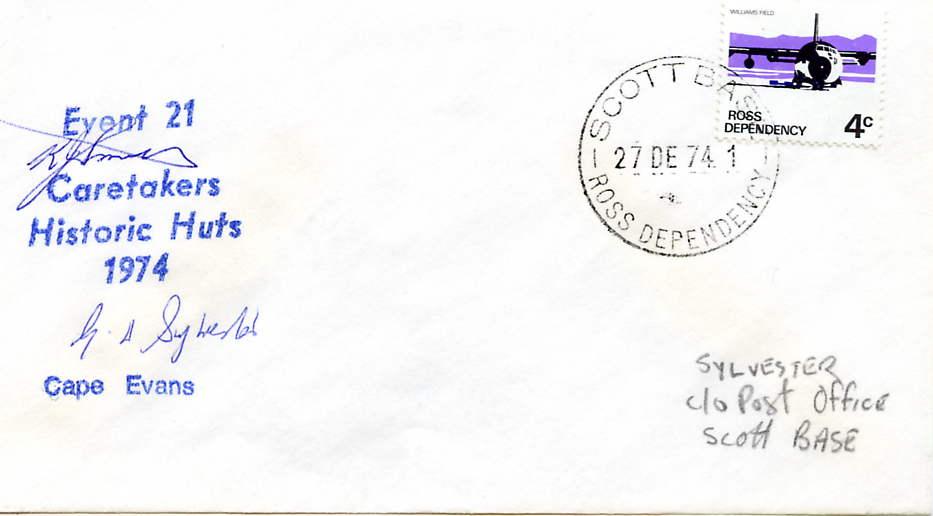 WILLIAMS FIELD
ROSS
DEPENDENCY 4c
SCOTT BASE
27 DE 74 1
ROSS DEPENDENCY
Event 21
Caretakers
Historic Huts
1974
G. A Sylvester
Cape Evans
SYLVESTER
c/o Post Office
Scott BASE